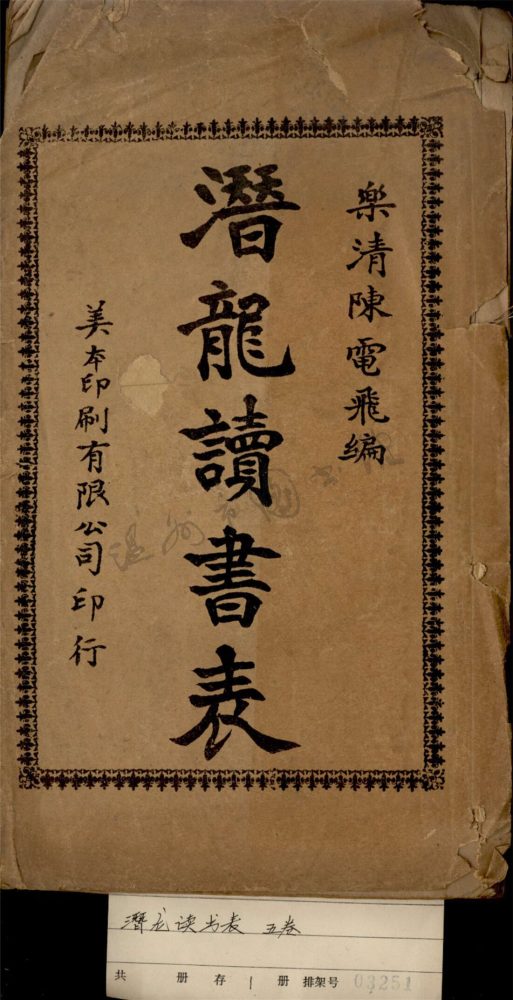 樂清陳電飛編
潛龍讀書表
美本印刷有限公司印行
潛龙读书表 五卷
共 册 存 1 册 排架号 03251